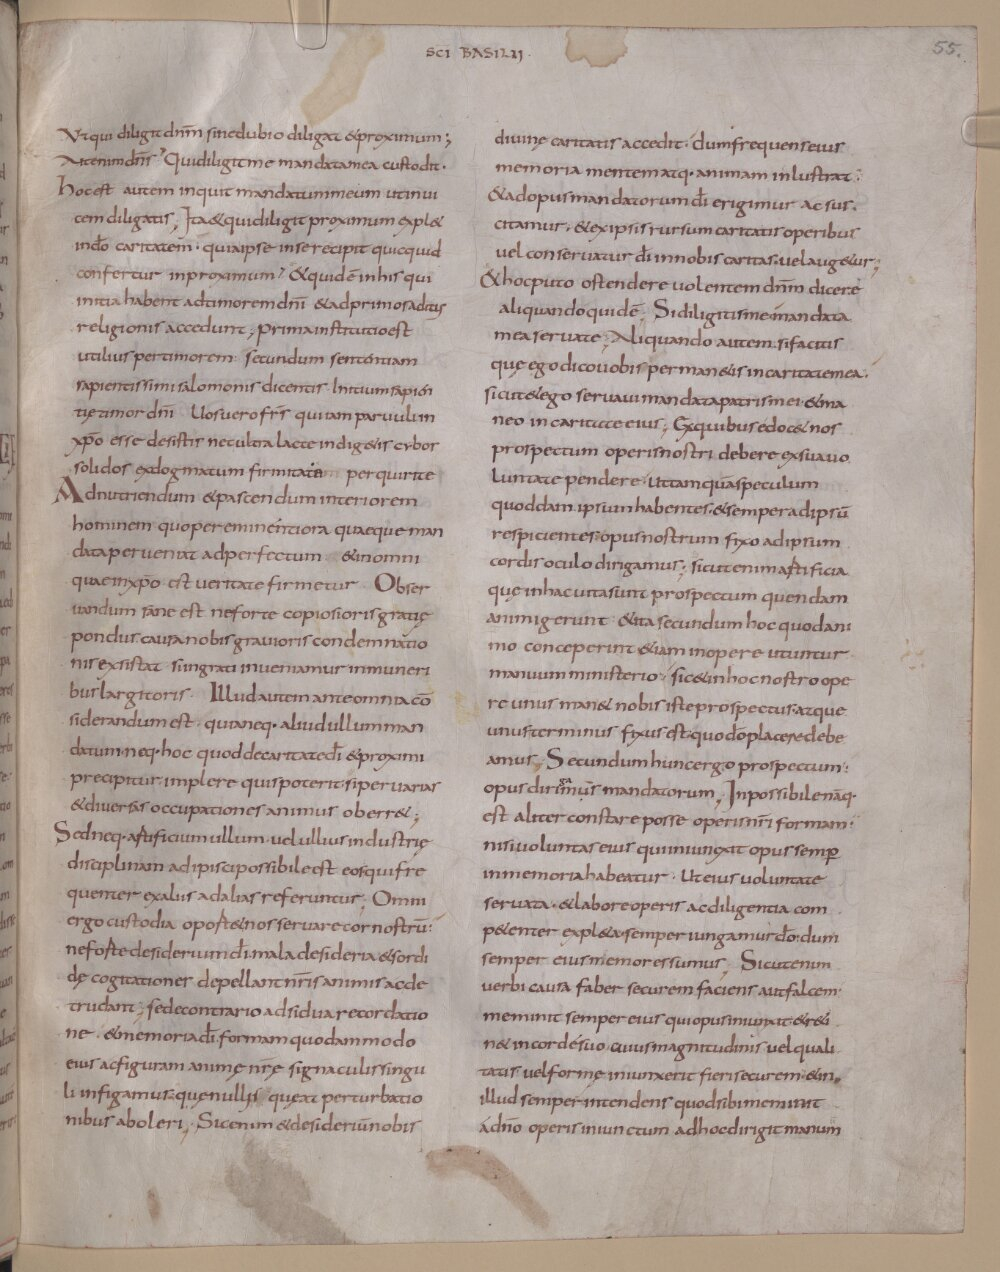 SCI BASILII
55.
Ut qui diligit dnm sine dubio diligat & proximum;
Ait enim dns? Qui diligit me mandata mea custodit.
hoc est autem inquit mandatum meum ut inui
cem diligatis; Ita & qui diligit proximum expl&
in do caritatem. quia ipse in se recipit quicquid
confertur in proximum? & quidē in his qui
initia habent ad timorem dni & ad primos aditus
religionis accedunt; prima institutio est
utilius per timorem. secundum sententiam
sapientissimi salomonis dicentis. Initium sapien
tię timor dni. Uos uero frs qui iam paruuli in
xpo esse desistis nec ultra lacte indig&is cybos
solidos ex dogmatum firmitate perquirite
Ad nutriendum & pascendum interiorem
hominem quo per eminentiora quaeque man
data perueniat ad perfectum & in omni
quae in xpo est ueritate firmetur. Obser
uandum sane est ne forte copiosioris gratię
pondus causa nobis grauioris condemnatio
nis exsistat. si ingrati inueniamur in muneri
bus largitoris. Illud autem ante omnia cō
siderandum est. quia neq. aliud ullum man
datum. neq. hoc quod de caritate di & proximi
precipitur implere quis poterit. si per uarias
& diuersas occupationes animus oberr&;
Sed neq. artificium illum. uel ullius industrię
disciplinam adipisci possibile est eos qui fre
quenter ex aliis ad alias referuntur; Omni
ergo custodia oport& nos seruare cor nostrū.
ne forte desiderium di mala desideria & sordi
dę cogitationes depellant nris animis ac de
trudant; sed e contrario adsidua recordatio
ne. & memoria di formam quodammodo
eius ac figuram animę nrę signaculis singu
li infigamus. que nullis queat perturbatio
nibus aboleri; Sic enim & desideriū nobis
diuinę caritatis accedit. dum frequens eius
memoria mentem atq. animam inlustrat.
& ad opus mandatorum di erigimur ac sus
citamur. & ex ipsis rursum caritatis operibus
uel conseruatur di in nobis caritas uel aug&ur;
& hoc puto ostendere uolentem dnm dicere
aliquando quidē; Si diligitis me mandata
mea seruate; Aliquando autem. si facitis
quę ego dico uobis perman&is in caritate mea.
sicut & ego seruaui mandata patris mei. & ma
neo in caritate eius; Ex quibus edoc& nos
prospectum operis nostri debere ex suauo
luntate pendere. ut tamquā speculum
quoddam. ipsum habentes. & semper ad ipsū
respicientes. opus nostrum fixo ad ipsum
cordis oculo dirigamus; sicut enim artificia
quę in hac uita sunt prospectum quendam
animi gerunt & ita secundum hoc quod ani
mo conceperint &iam in opere utuntur
manuum ministerio. sic & in hoc nostro ope
re unus man& nobis iste prospectus. atque
unus terminus fixus est. quo do placere debe
amus; Secundum hunc ergo prospectum.
opus dirimus mandatorum; Inpossibile nāq.
est aliter constare posse operis nri formam.
nisi uoluntas eius qui iniunxit opus semper
in memoria habeatur. Ut eius uoluntate
seruata. & labore operis ac diligentia com
p&enter expl&a. semper iungamur do. dum
semper eius memores sumus; Sicut enim
uerbi causa faber securem faciens aut falcem
meminit semper eius qui opus iniunxit & r&i
n& in corde suo. cuius magnitudinis uel quali
tatis uel formę iniunxerit fieri securem. & in
illud semper intendens quod sibi meminit
a dno operis iniunctum ad hoc dirigit manum